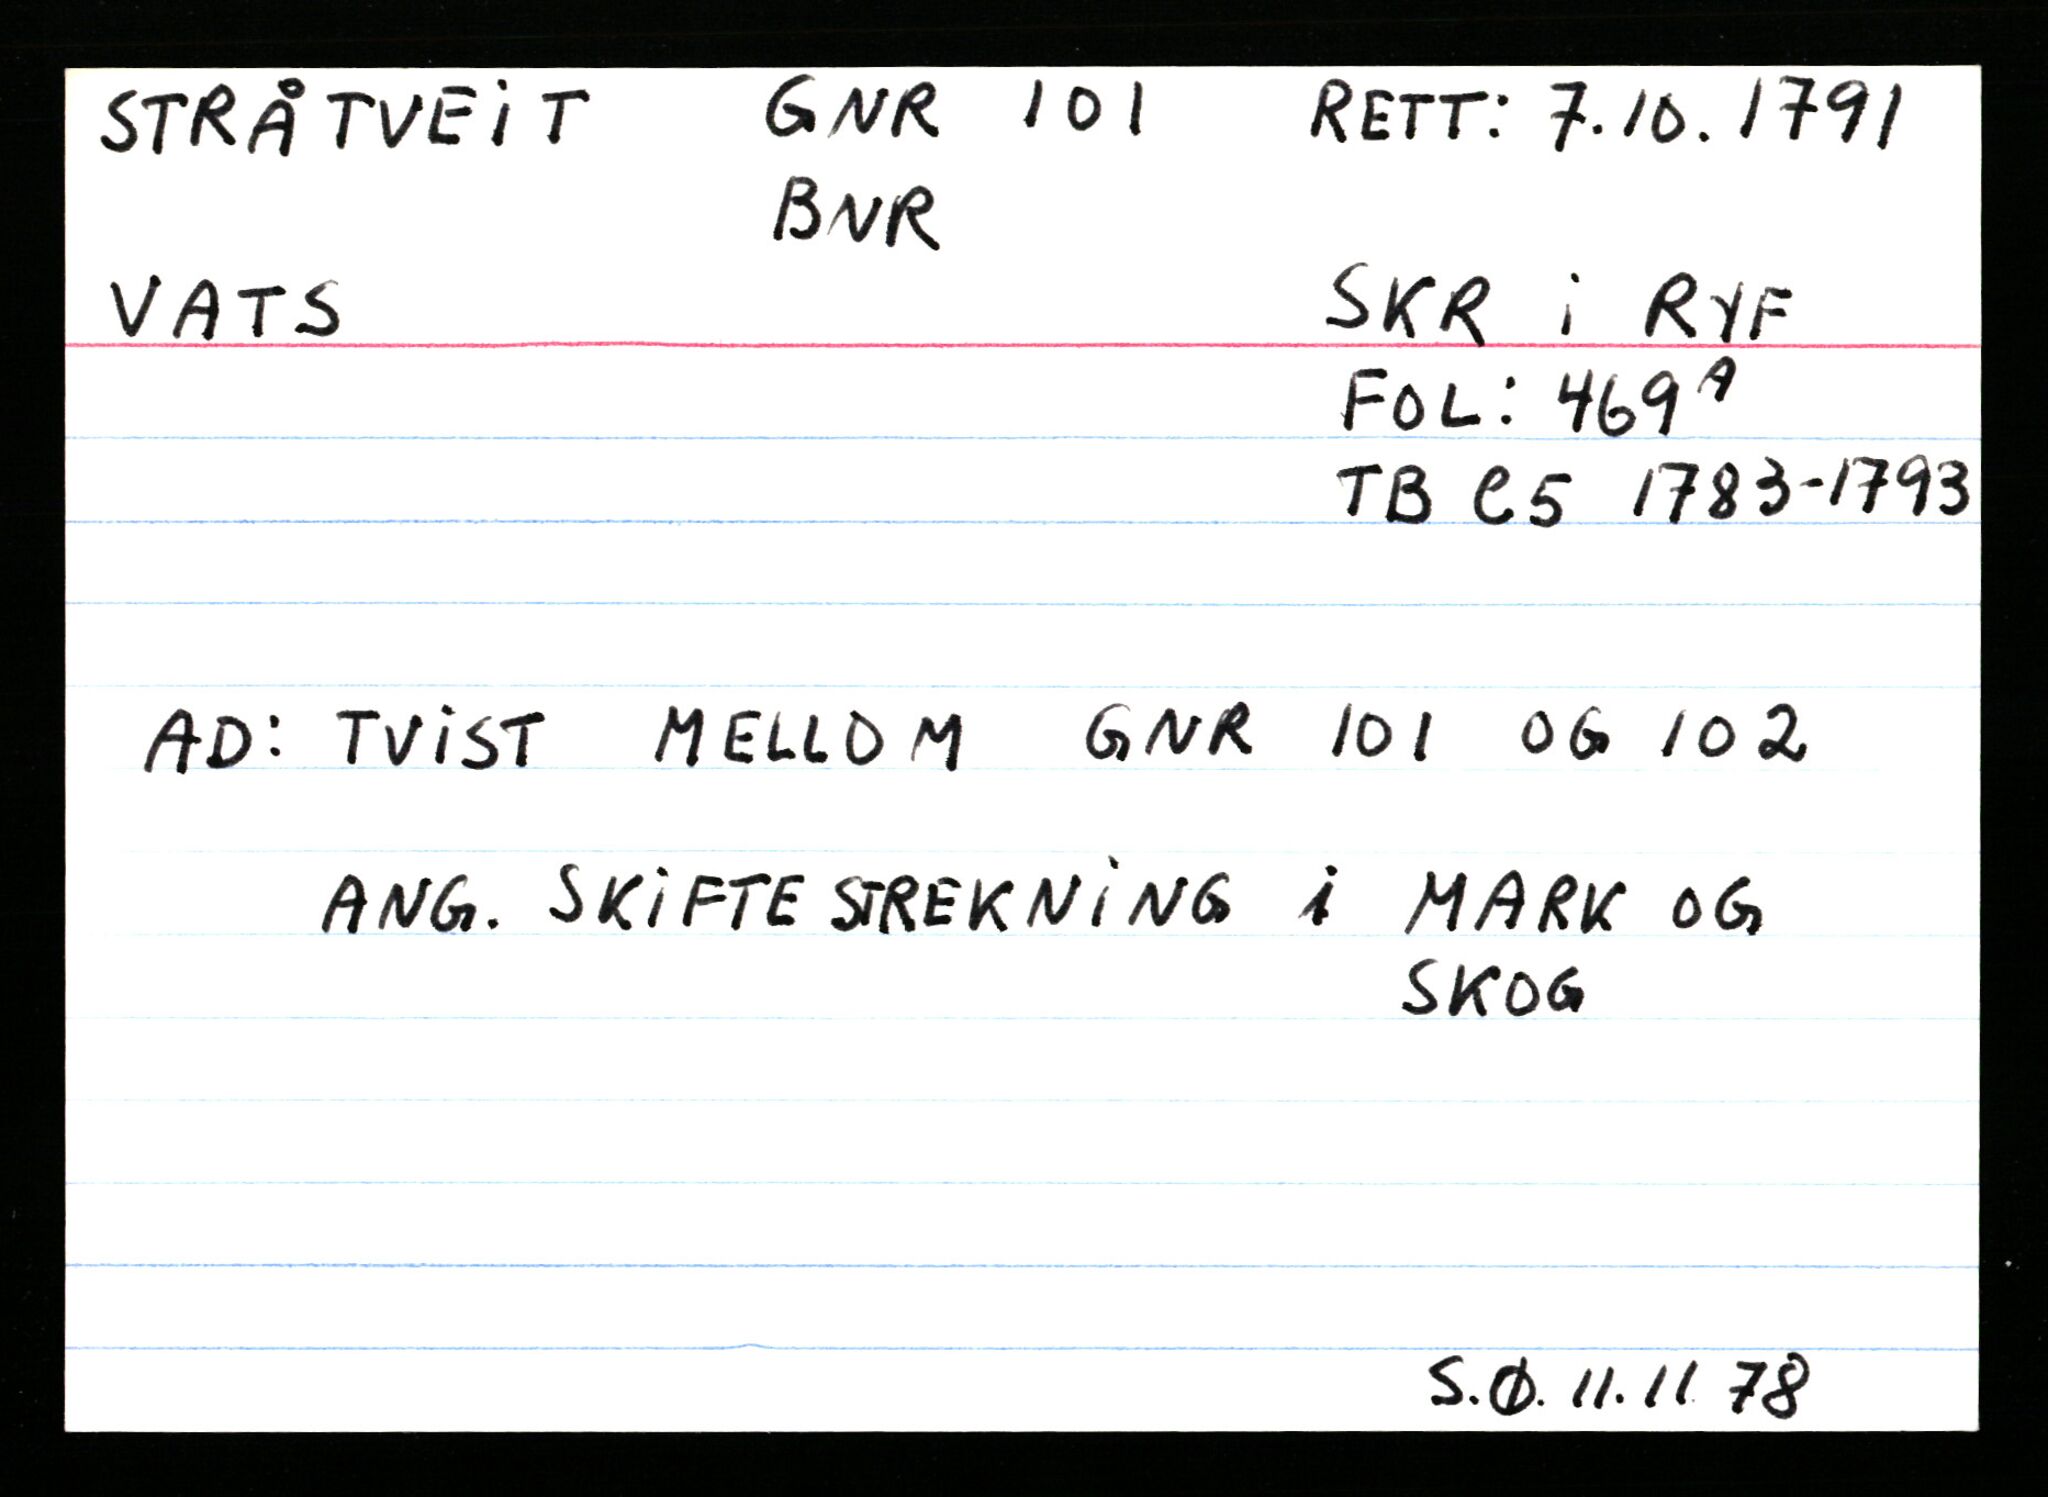 STRÅTVEiT GNR 101 RETT: 7.10.1791
BNR
VATS SKR i RYF
FOL: 469A
TB C5 1783-1793
AD: TViST MELLOM GNR 101 OG 102
ANG. SKiFTESTREKNiNG i MARK OG
SKOG
S.Ø. 11.11 78